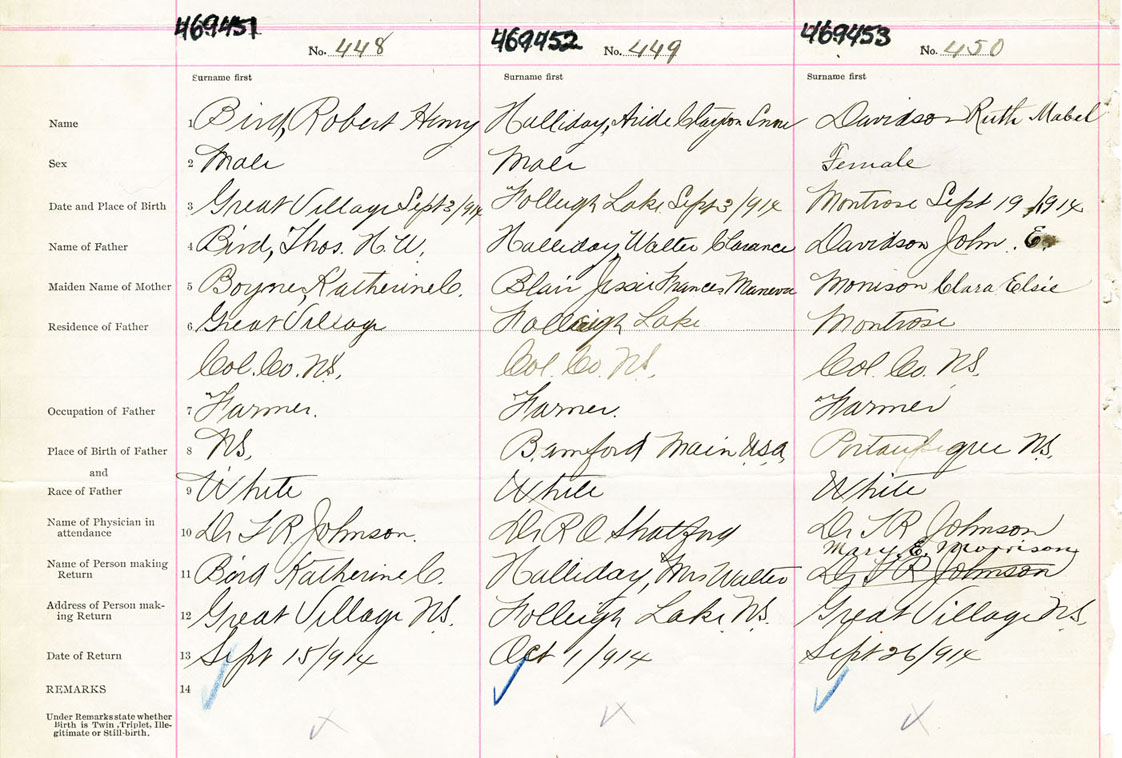 469451 469452 469453
No. 448 No. 449 No. 450
Surname first Surname first Surname first
Name 1 Bird, Robert Henry Halliday, Clayton Snow Davidson Ruth Mabel
Sex 2 Male Male Female
Date and Place of Birth 3 Great Village Sept 3/914 Folleigh Lake Sept 3/914 Montrose Sept 19 /1914
Name of Father 4 Bird, Thos. H. W. Halliday, Walter Clarance Davidson John. E.
Maiden Name of Mother 5 Boyne, Katherine C. Blair Jessie Frances Davidson Clara Elsie
Residence of Father 6 Great Village Folleigh Lake Montrose
Col. Co. N.S. Col. Co. N.S. Col. Co. N.S.
Occupation of Father 7 Farmer. Farmer. Farmer
Place of Birth of Father 8 N.S. Main U.S.A. Portaupique N.S.
and
Race of Father 9 White White White
Name of Physician in
attendance 10 Dr T R Johnson. Dr R O Shatford Dr T R Johnson
Mary. E. Morrison
Name of Person making
Return 11 Bird Katherine C. Halliday, Mrs Walter Dr T R Johnson
Address of Person mak-
ing Return 12 Great Village N.S. Folleigh Lake N.S. Great Village N.S.
Date of Return 13 Sept 15/914 Oct 1/914 Sept 26/914
REMARKS 14
Under Remarks state whether
Birth is Twin, Triplet, Ille-
gitimate or Still-birth.